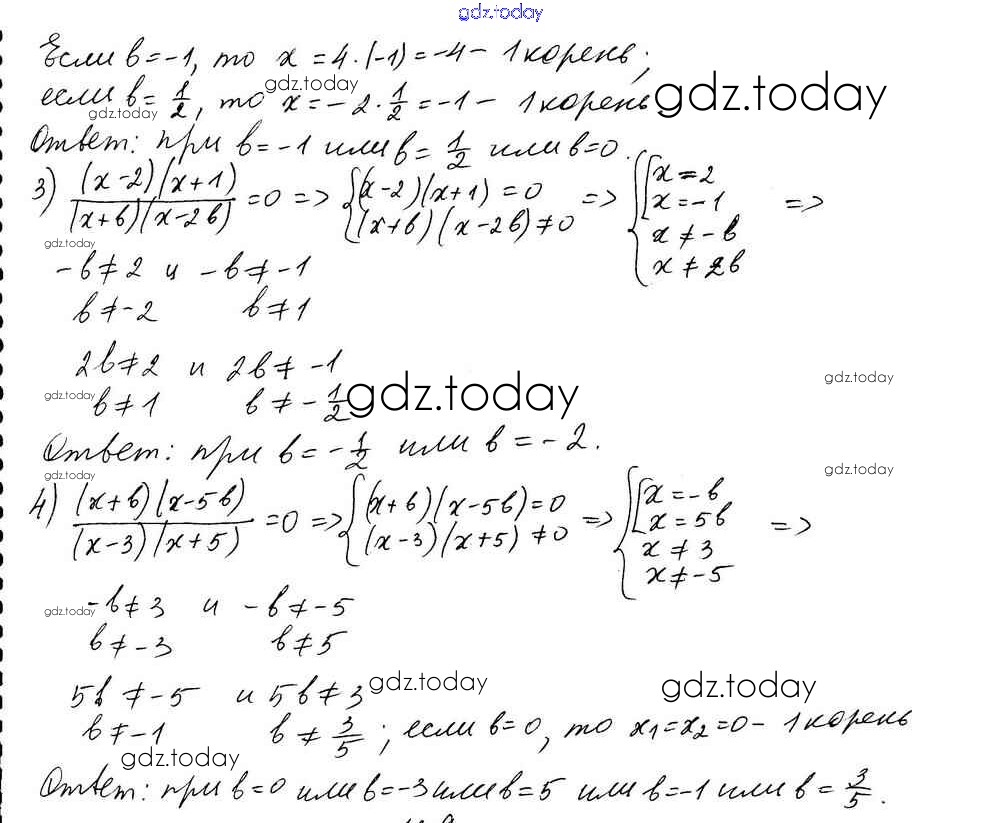 gdz.today
Если b = -1, то x = 4·(-1) = -4 - 1 корень;
gdz.today
если b = 1/2, то x = -2·1/2 = -1 - 1 корень gdz.today
gdz.today
Ответ: при b = -1 или b = 1/2 или b = 0.
3) (x-2)(x+1)/(x+b)(x-2b) = 0 => {(x-2)(x+1) = 0 (x+b)(x-2b) ≠ 0 => {[x = 2 x = -1 x ≠ -b x ≠ 2b =>
gdz.today
-b ≠ 2 и -b ≠ -1
b ≠ -2 b ≠ 1
2b ≠ 2 и 2b ≠ -1
gdz.today
gdz.today b ≠ 1 b ≠ -1/2 gdz.today
Ответ: при b = -1/2 или b = -2.
gdz.today gdz.today
4) (x+b)(x-5b)/(x-3)(x+5) = 0 => {(x+b)(x-5b) = 0 (x-3)(x+5) ≠ 0 => {[x = -b x = 5b x ≠ 3 x ≠ -5 =>
gdz.today -b ≠ 3 и -b ≠ -5
b ≠ -3 b ≠ 5
5b ≠ -5 и 5b ≠ 3 gdz.today gdz.today
b ≠ -1 b ≠ 3/5; если b = 0, то x₁ = x₂ = 0 - 1 корень
gdz.today
Ответ: при b = 0 или b = -3 или b = 5 или b = -1 или b = 3/5.